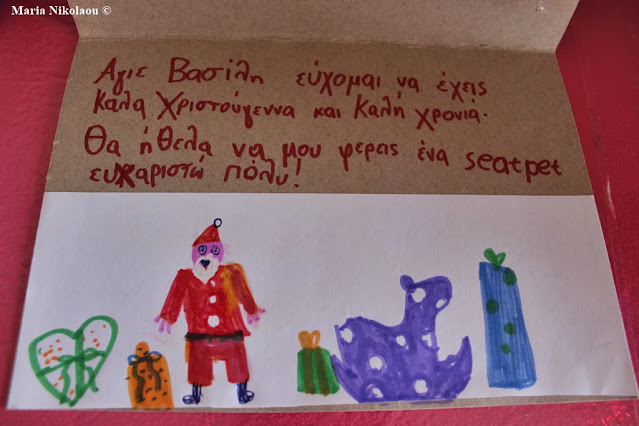 Maria Nikolaou ©
Αγιε Βασίλη εύχομαι να έχεις
καλα Χριστούγεννα και καλή χρονιά.
Θα ήθελα να μου φερεις ένα seatpet
ευχαριστώ πολυ!